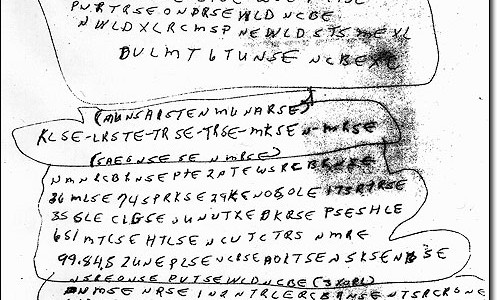 PNRTRSEONDRSEWLDNCBE
NWLDXLRCMSPNEWLDSTSMEXL
DULMT6TUNSENCBEXE
(MUNSAISTENMUNARSE)
KLSE-LRSTE-TRSE-TRSE-MKSEN-MRSE
(SAEGNSESENMRSE)
NMNRCBRNSEPTE2PTEWSRCBRNSE
36MLSE74SPRKSE29KENOSOLE173RTRSE
35GLECLGSEOUNUTXEDKRSEPSESHLE
651MTCSEHTLSENCUTCTRSNMRE
99.84.52UNEPLSENCRSEAOLTSENSKSENBSE
NSREONSEPUTSEWLDNCBE(3XORL)